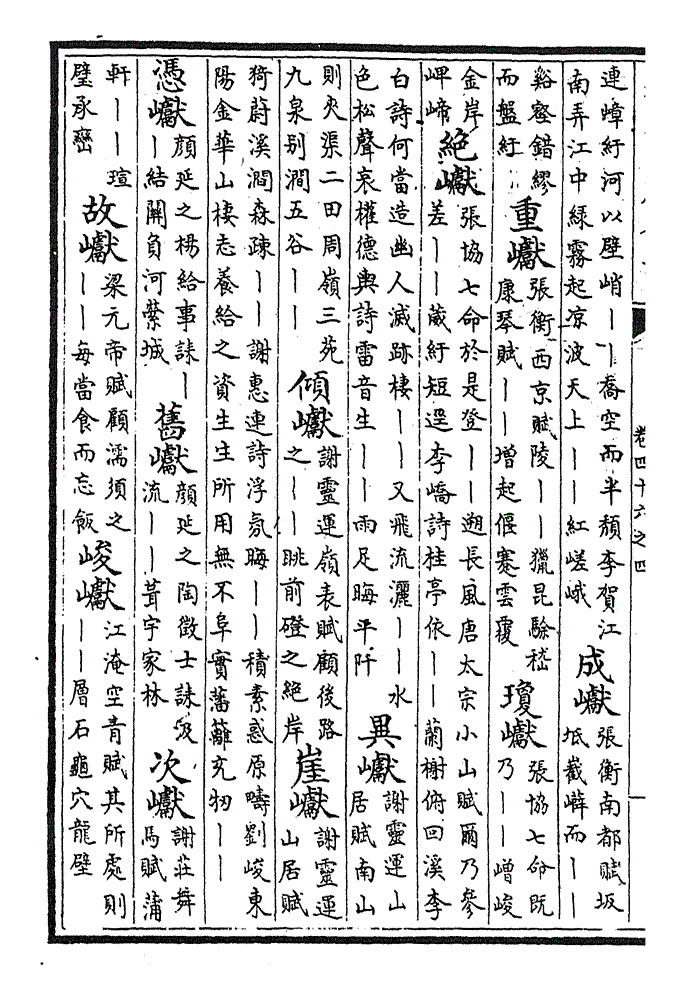 卷四十六之四
連嶂紆河以壁峭丨丨喬空而半頹李賀江
南弄江中綠霧起凉波天上丨丨紅嵯峨
成巘
張衡南都賦坂
坻嶻嶭而丨丨
谿壑錯繆
而盤紆
重巘
張衡西京賦陵丨丨獵昆駼嵇
康琴賦丨丨增起偃蹇雲覆
瓊巘
張協七命既
乃丨丨嶒峻
金岸
岬㟷
絕巘
張協七命於是登丨丨遡長風唐太宗小山賦爾乃參
差丨丨葳紆短逕李嶠詩桂亭依丨丨蘭榭俯回溪李
白詩何當造幽人滅跡棲丨丨又飛流灑丨丨水
色松聲哀權德輿詩雷音生丨丨雨足晦平阡
異巘
謝靈運山
居賦南山
則夾渠二田周嶺三苑
九泉别澗五谷丨丨
傾巘
謝靈運嶺表賦顧後路
之丨丨眺前磴之絕岸
崖巘
謝靈運
山居賦
猗蔚溪澗森疎丨丨謝惠連詩浮氛晦丨丨積素惑原疇劉峻東
陽金華山棲志養給之資生生所用無不阜實蕃籬充牣丨丨
憑巘
顏延之楊給事誄丨
丨結關負河縈城
舊巘
顏延之陶徵士誄汲
流丨丨葺宇家林
次巘
謝莊舞
馬賦蒲
軒丨丨瑄
璧承巒
故巘
梁元帝賦顧濡須之
丨丨每當食而忘飯
峻巘
江淹空青賦其所處則
丨丨層石龜穴龍壁